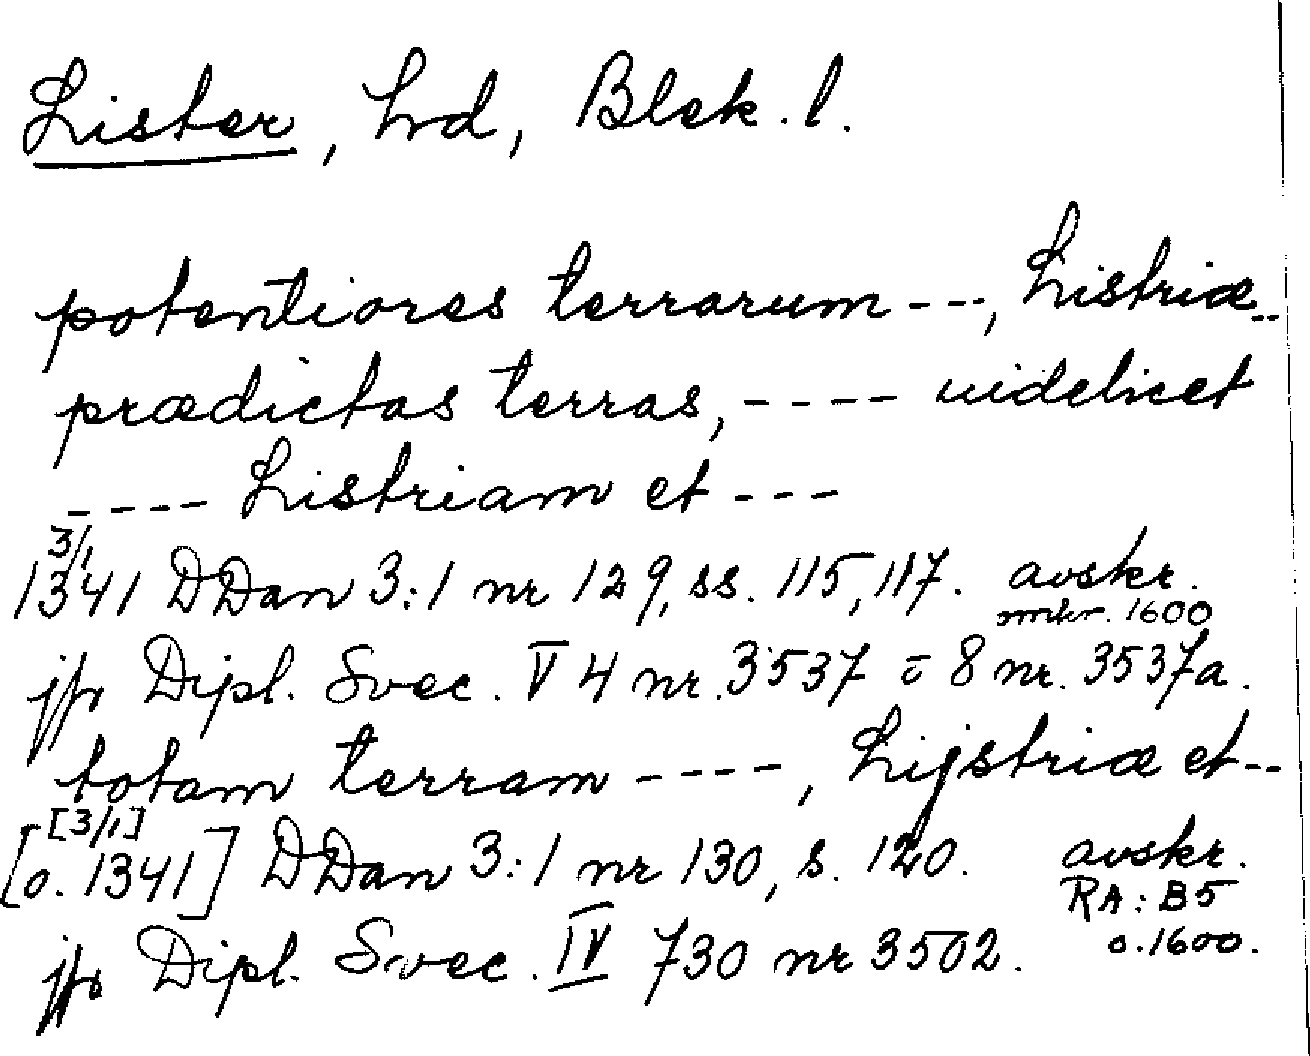 Lister, hrd, Blek. l.
potentiores terrarum ---, Listriæ --
prædictas terras, ---- uidelicet
---- Listriam et ---
3/1
1341 DDan 3:1 nr 129, ss. 115, 117. avskr.
omkr. 1600
jfr Dipl. Svec. V 4 nr. 3537 o 8 nr. 3537a.
totam terram ----, Lijstriæ et --
[3/1]
[o. 1341] DDan 3:1 nr 130, s. 120. avskr.
RA: B5
o. 1600.
jfr Dipl. Svec. IV 730 nr 3502.